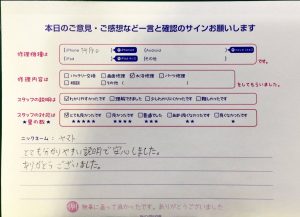 本日のご意見・ご感想など一言と確認のサインお願いします
修理機種は
iPhone
iPad
Android
その他
です。
修理内容は
バッテリー交換
画面修理
水没修理
パーツ修理
相談
その他
をしてもらいました。
スタッフの説明は
わかりやすかったです
理解できました
少しわかりにくかったです
難しかったです
スタッフの対応は
★星の数★
とても良かったです
良かったです
普通でした
★★★★★
★★★★
★★★
★★
★
ニックネーム: ヤマト
とても分かりやすい説明で安心しました。
ありがとうございました。
無事に直って良かったです。ありがとうございました